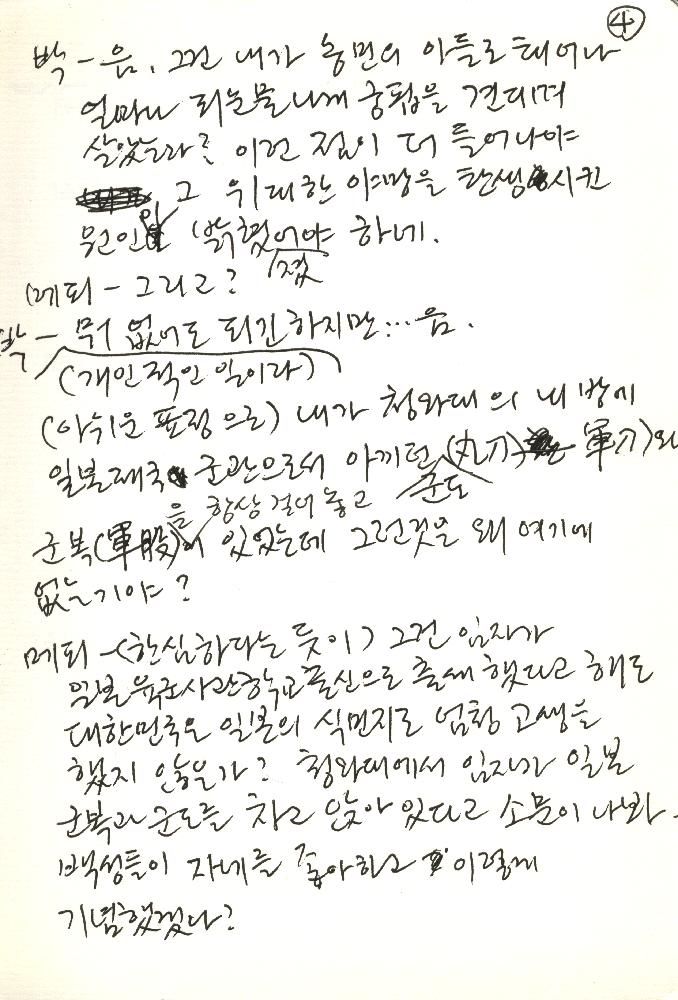 ④
박 - 음. 그건 내가 농민의 아들로 태어나
얼마나 피눈물나게 궁핍을 견디며
살았는가? 이런 점이 더 들어나야
그 위대한 야망을 탄생시킨
원인이 밝혀졌어야 하네.
메피 - 그리고?
박 - 뭐 없어도 되긴하지만… 음.
(개인적인 일이라)
(아쉬운 표정으로) 내가 청와대의 내 방에
일본제국 군관으로서 아끼던 군도(丸刀) 軍刀)와
군복(軍服)을 항상 걸어놓고 있었는데 그런것을 왜 여기에
없는기야?
메피 - (한심하다는 듯이) 그건 임자가
일본육군사관학교출신으로 출세했다고 해도
대한민국은 일본의 식민지로 엄청 고생을
했지 않은가? 청와대에서 임자가 일본
군복과 군도를 차고 앉아 있다고 소문이 나봐.
백성들이 자네를 좋아하고 이렇게
기념했겠나?